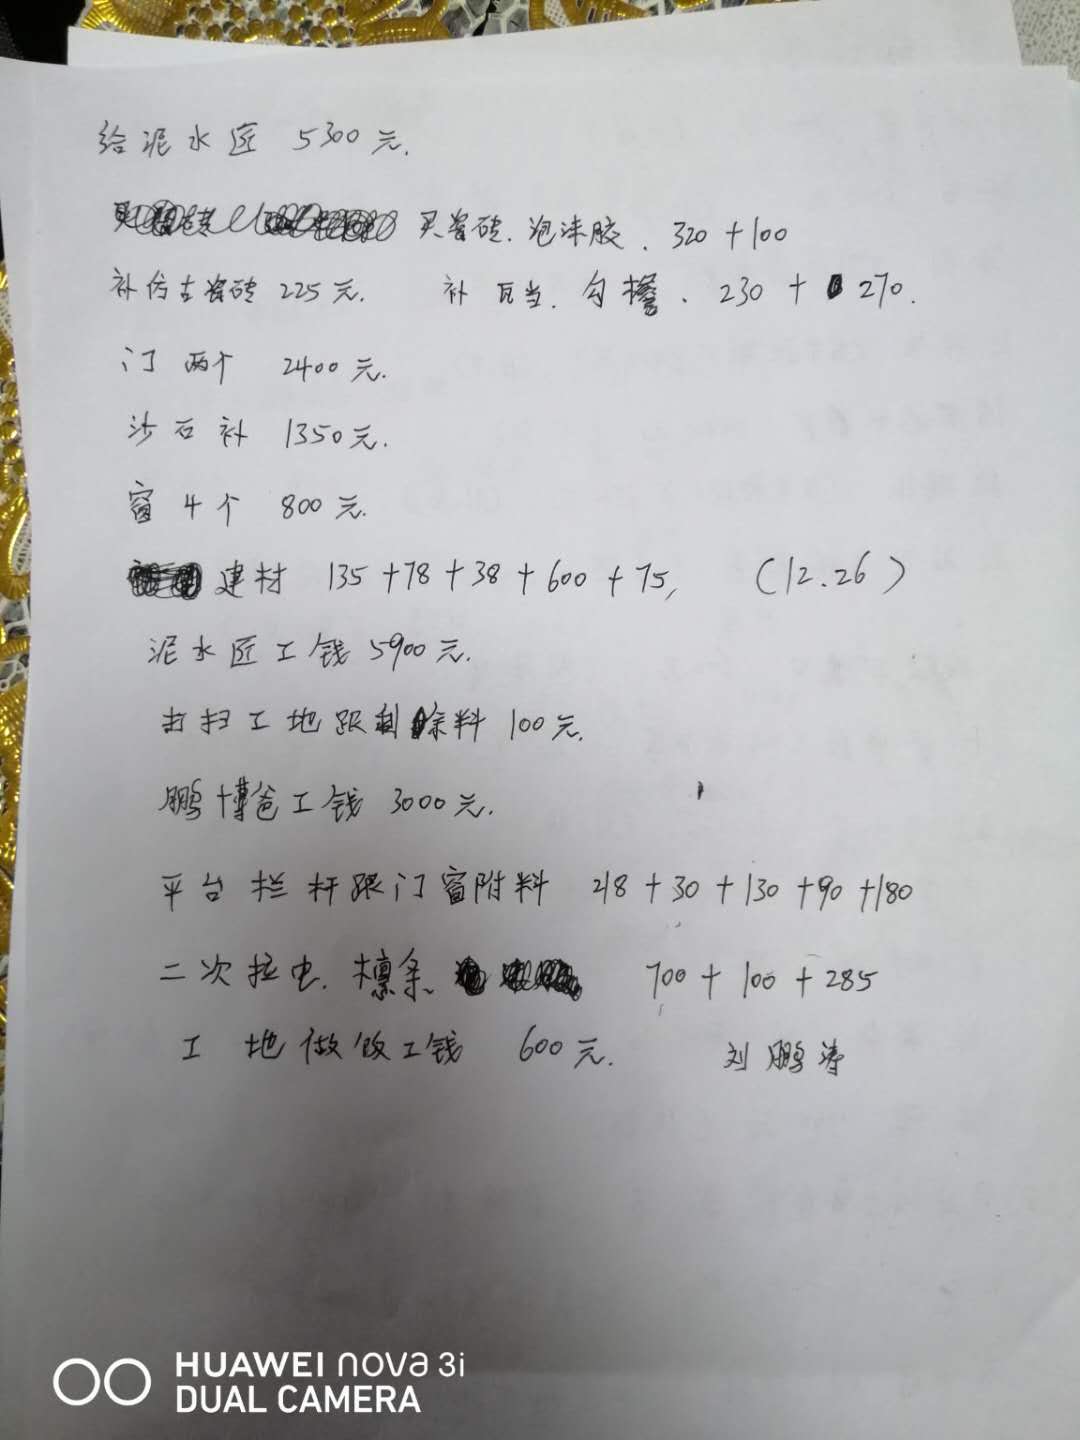 给泥水匠 5300元.
买瓷砖.泡沫胶. 320+100
补仿古瓷砖 225元. 补瓦当.勾檐. 230+270.
门两个 2400元.
沙石补 1350元.
窗4个 800元.
建材 135+78+38+600+75, (12.26)
泥水匠工钱 5900元.
打扫工地跟剩余料 100元.
鹏博爸工钱 3000元.
平台栏杆跟门窗附料 218+30+130+90+180
二次拉虫.檩条 700+100+285
工地做饭工钱 600元. 刘鹏涛
HUAWEI nova 3i
DUAL CAMERA